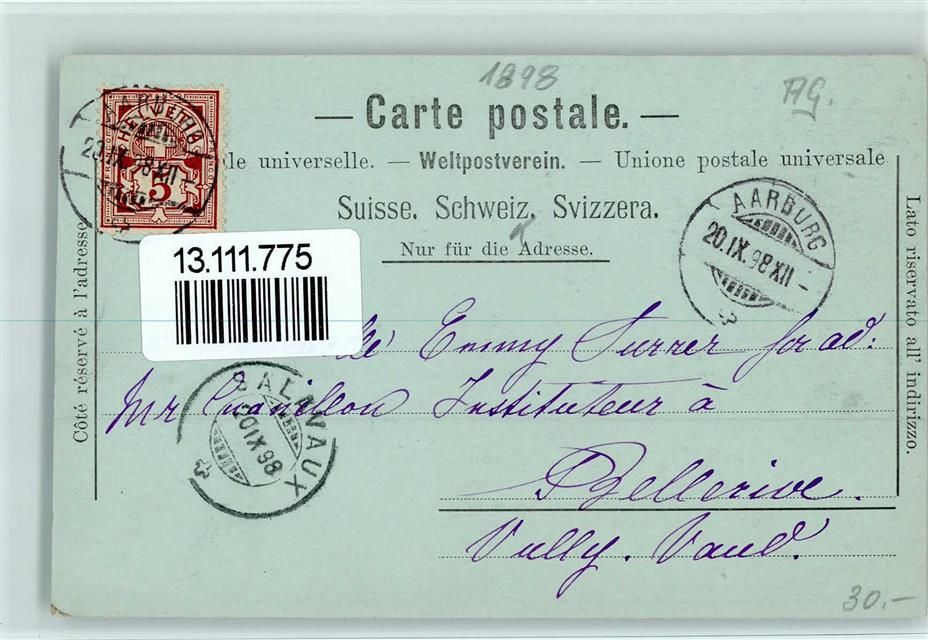 1898
AG.
— Carte postale. —
le universelle. — Weltpostverein. — Unione postale universale
Suisse. Schweiz. Svizzera.
Nur für die Adresse.
HELVETIA
FRANCO
5
20.IX.98 XII –
AARBURG
20.IX.98 XII –
Côté réservé à l'adresse
Lato riservato all' indirizzo.
13.111.775
lle Emmy Surrer
Mr Institututeur à
Bellerive.
Vully. Vaud.
SALAVAUX
20 IX 98
30.–